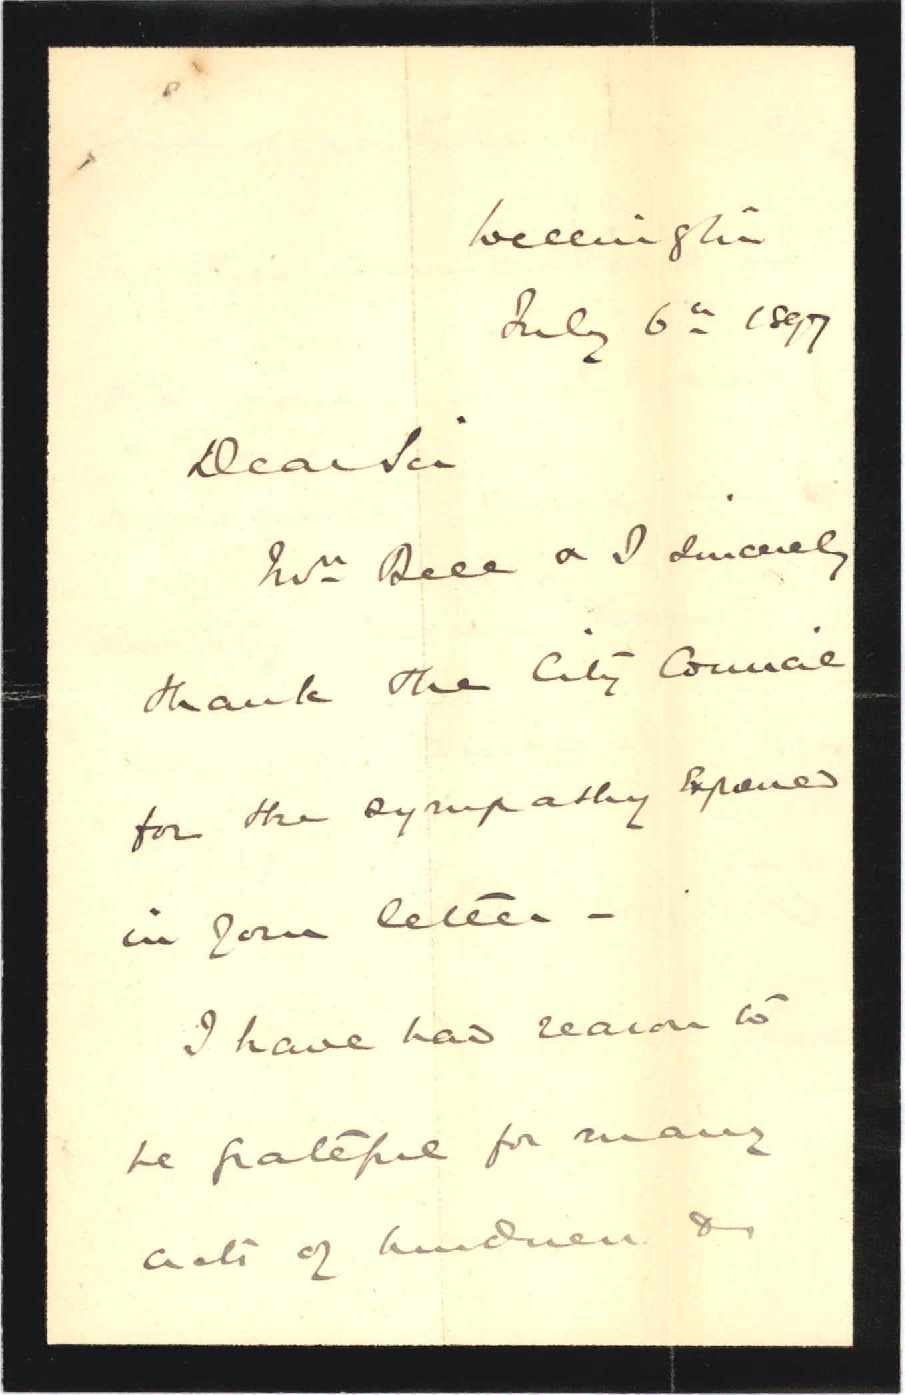 Wellington
July 6th 1897
Dear Sir
Mrs Bell & I sincerely
thank the City Council
for the sympathy expressed
in your letter –
I have had reason to
be grateful for many
acts of kindness &